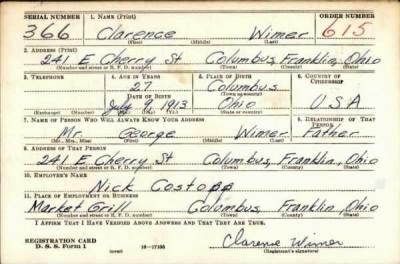 SERIAL NUMBER 1. NAME (Print) ORDER NUMBER
366 Clarence Wimer 615
(First) (Middle) (Last)
2. ADDRESS (Print)
241 E Cherry St Columbus, Franklin, Ohio
(Number and street or R. F. D. number) (Town) (County) (State)
3. TELEPHONE 4. AGE IN YEARS 5. PLACE OF BIRTH 6. COUNTRY OF CITIZENSHIP
27 Columbus
DATE OF BIRTH (Town or county)
July 9, 1913 Ohio USA
(Exchange) (Number) (Mo.) (Day) (Yr.) (State or country)
7. NAME OF PERSON WHO WILL ALWAYS KNOW YOUR ADDRESS 8. RELATIONSHIP OF THAT PERSON
Mr. George Wimer Father
(Mr., Mrs., Miss) (First) (Middle) (Last)
9. ADDRESS OF THAT PERSON
241 E Cherry St Columbus, Franklin, Ohio
(Number and street or R. F. D. number) (Town) (County) (State)
10. EMPLOYER'S NAME
Nick
11. PLACE OF EMPLOYMENT OR BUSINESS
Market Grill Columbus, Franklin, Ohio
(Number and street or R. F. D. number) (Town) (County) (State)
I AFFIRM THAT I HAVE VERIFIED ABOVE ANSWERS AND THAT THEY ARE TRUE.
REGISTRATION CARD
D. S. S. Form 1 (over) 16—17105 Clarence Wimer
(Registrant's signature)